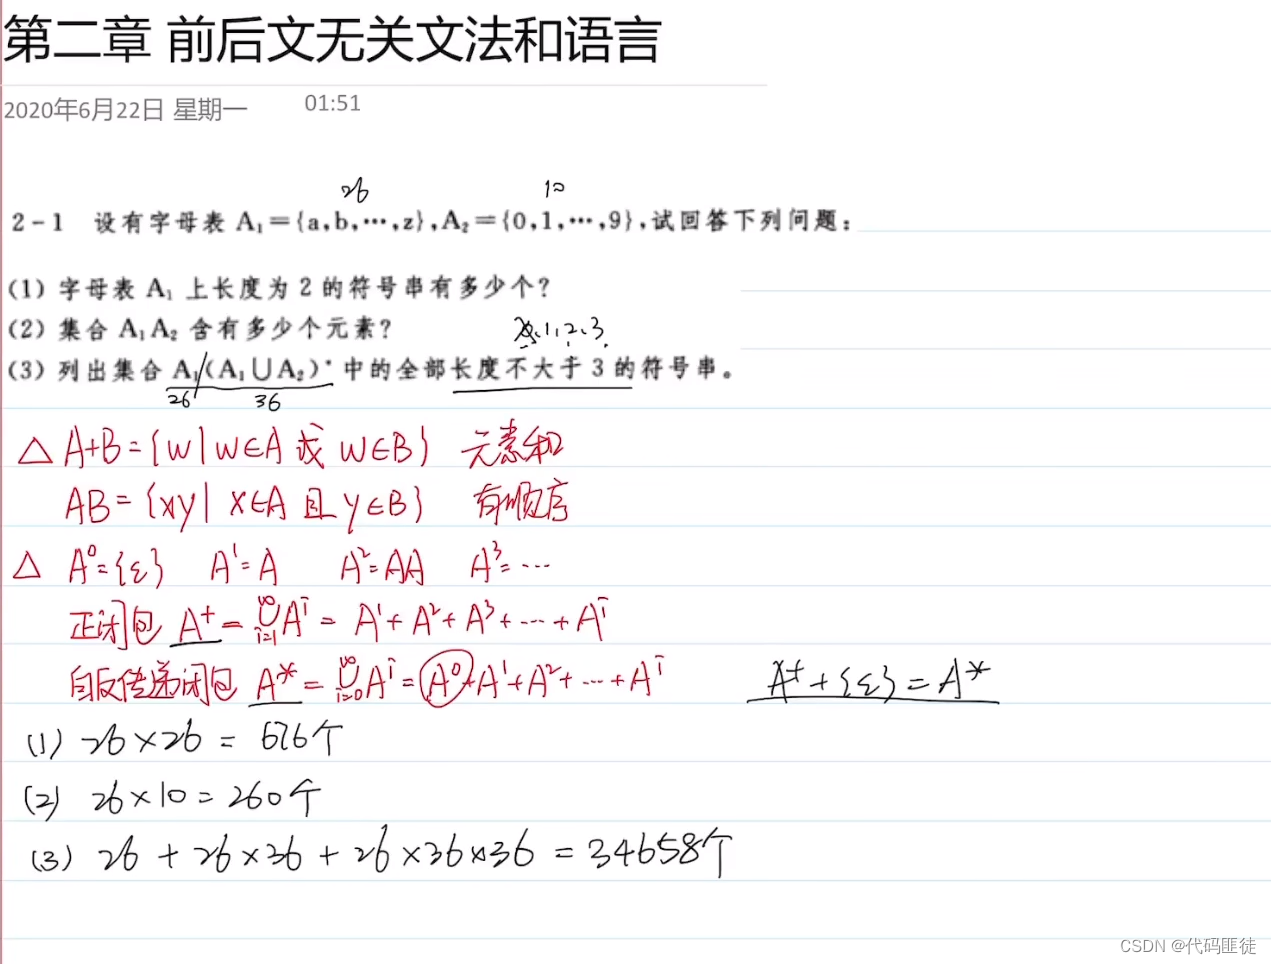 第二章 前后文无关文法和语言
2020年6月22日 星期一 01:51
26 10
2-1 设有字母表 A₁={a,b,…,z},A₂={0,1,…,9},试回答下列问题:
(1) 字母表 A₁ 上长度为 2 的符号串有多少个?
(2) 集合 A₁A₂ 含有多少个元素?
1、2、3
(3) 列出集合 A₁(A₁∪A₂)* 中的全部长度不大于 3 的符号串。
26 36
△ A+B={w|w∈A 或 w∈B} 元素和
AB={xy| x∈A 且 y∈B} 有顺序
△ A⁰={ε} A¹=A A²=AA A³=…
正闭包 A⁺=∪_{i=1}^{∞}Aⁱ = A¹+A²+A³+…+Aⁱ
自反传递闭包 A*=∪_{i=0}^{∞}Aⁱ=A⁰+A¹+A²+…+Aⁱ A⁺+{ε}=A*
(1) 26×26 = 676个
(2) 26×10=260个
(3) 26 + 26×36 + 26×36×36 = 34658个
CSDN @代码匪徒